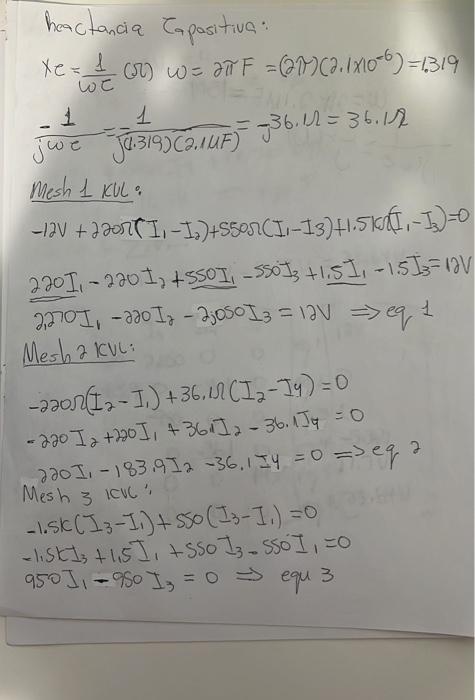 Reactancia Capasitiva:
Xc = 1/ωc (Ω) ω = 2πF = (2π)(2.1x10⁻⁶) = 1.319
-1/jωc = 1/j(1.319)(2.1UF) = -j36.1Ω = 36.1Ω
Mesh 1 KVL:
-12V + 220Ω(I₁-I₂)+550Ω(I₁-I3)+1.5kΩ(I₁-I₃)=0
220I₁ - 220I₂ + 550I₁ - 550I₃ + 1.5I₁ - 1.5I₃ = 12V
2,270I₁ - 220I₂ - 2,050I₃ = 12V ⇒ eq 1
Mesh 2 KVL:
-220Ω(I₂-I₁)+36.1Ω(I₂-I4) = 0
-220I₂+220I₁ + 36.1I₂ - 36.1I4 = 0
220I₁ - 183.9I₂ - 36.1I4 = 0 ⇒ eq 2
Mesh 3 KVL:
-1.5k(I₃-I₁)+550(I₃-I₁)=0
-1.5kI₃ + 1.5I₁ + 550I₃ - 550I₁ = 0
950I₁ - 950I₃ = 0 ⇒ equ 3